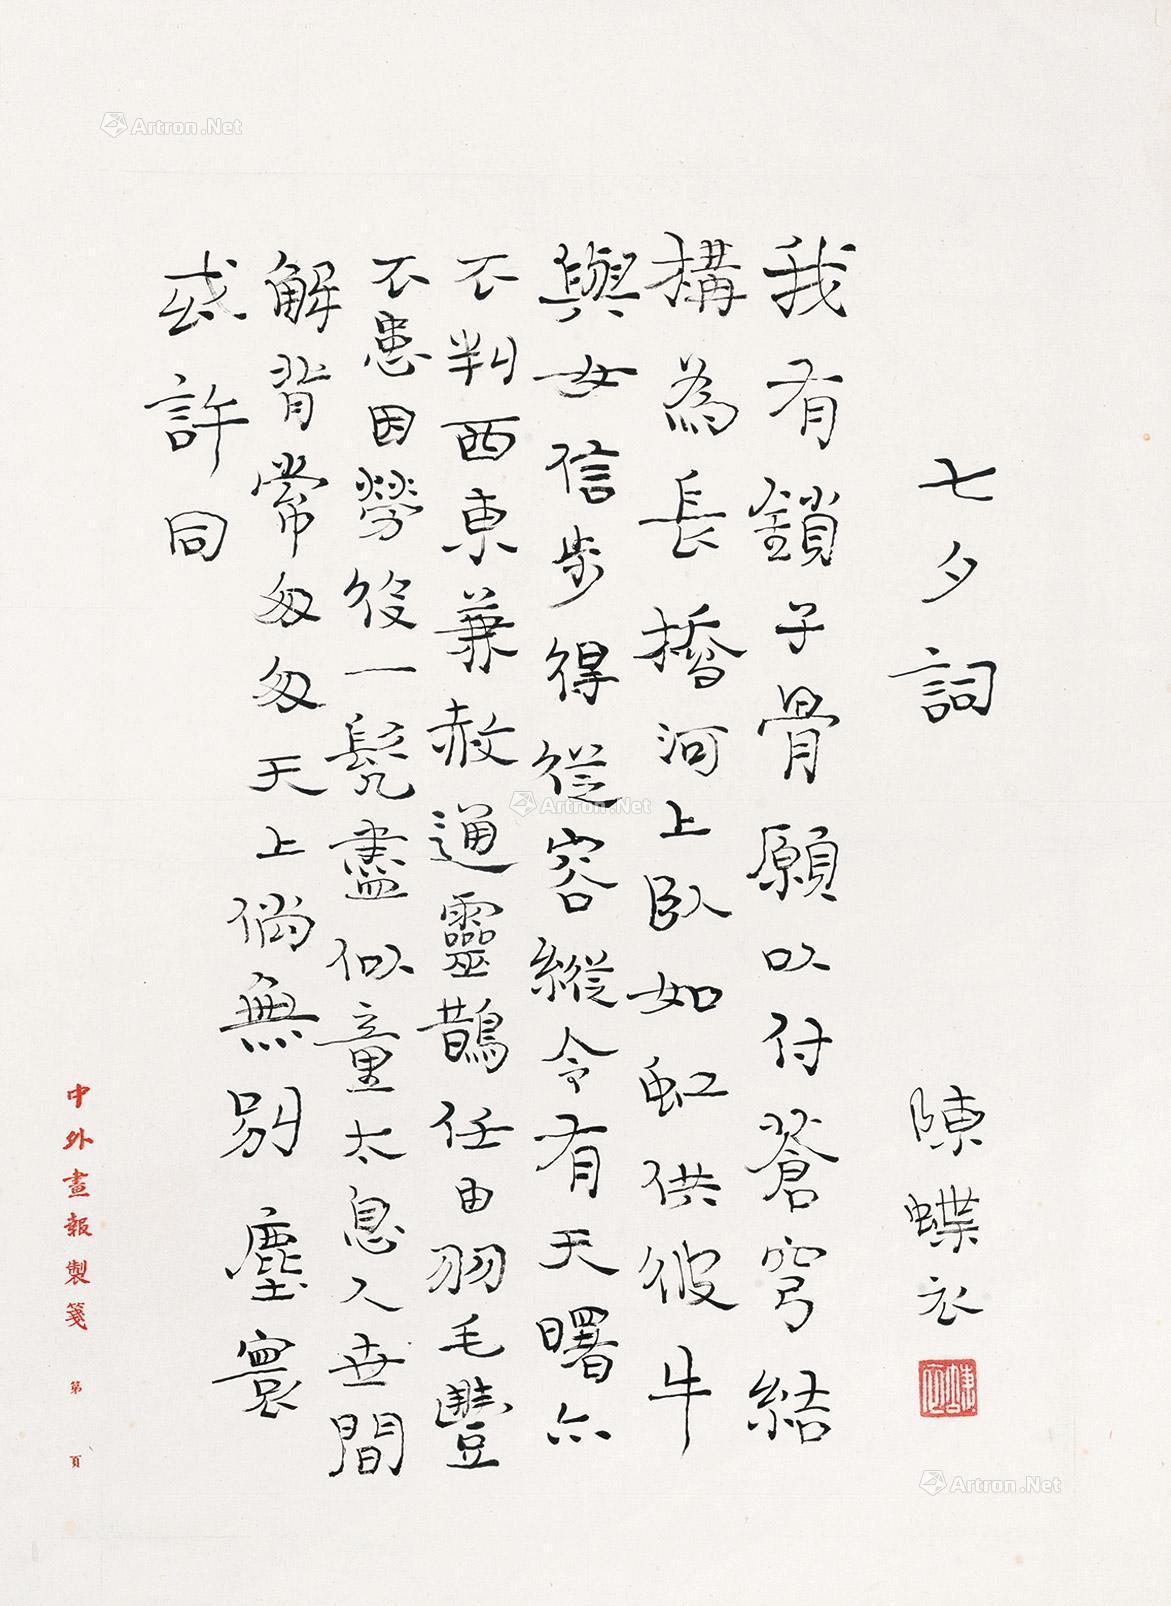 七夕詞 陳蝶衣
我有鎖子骨願以付蒼穹結
構為長橋河上臥如虹供彼牛
與女信步得從容縱令有天曙亦
不判西東兼赦通靈鵲任由羽毛豐
不患因勞役一髡盡似童太息人世間
解背常匆匆天上倘無別塵寰
或許同
中外畫報製箋 第 頁
Artron.Net
Artron.Net
Artron.Net